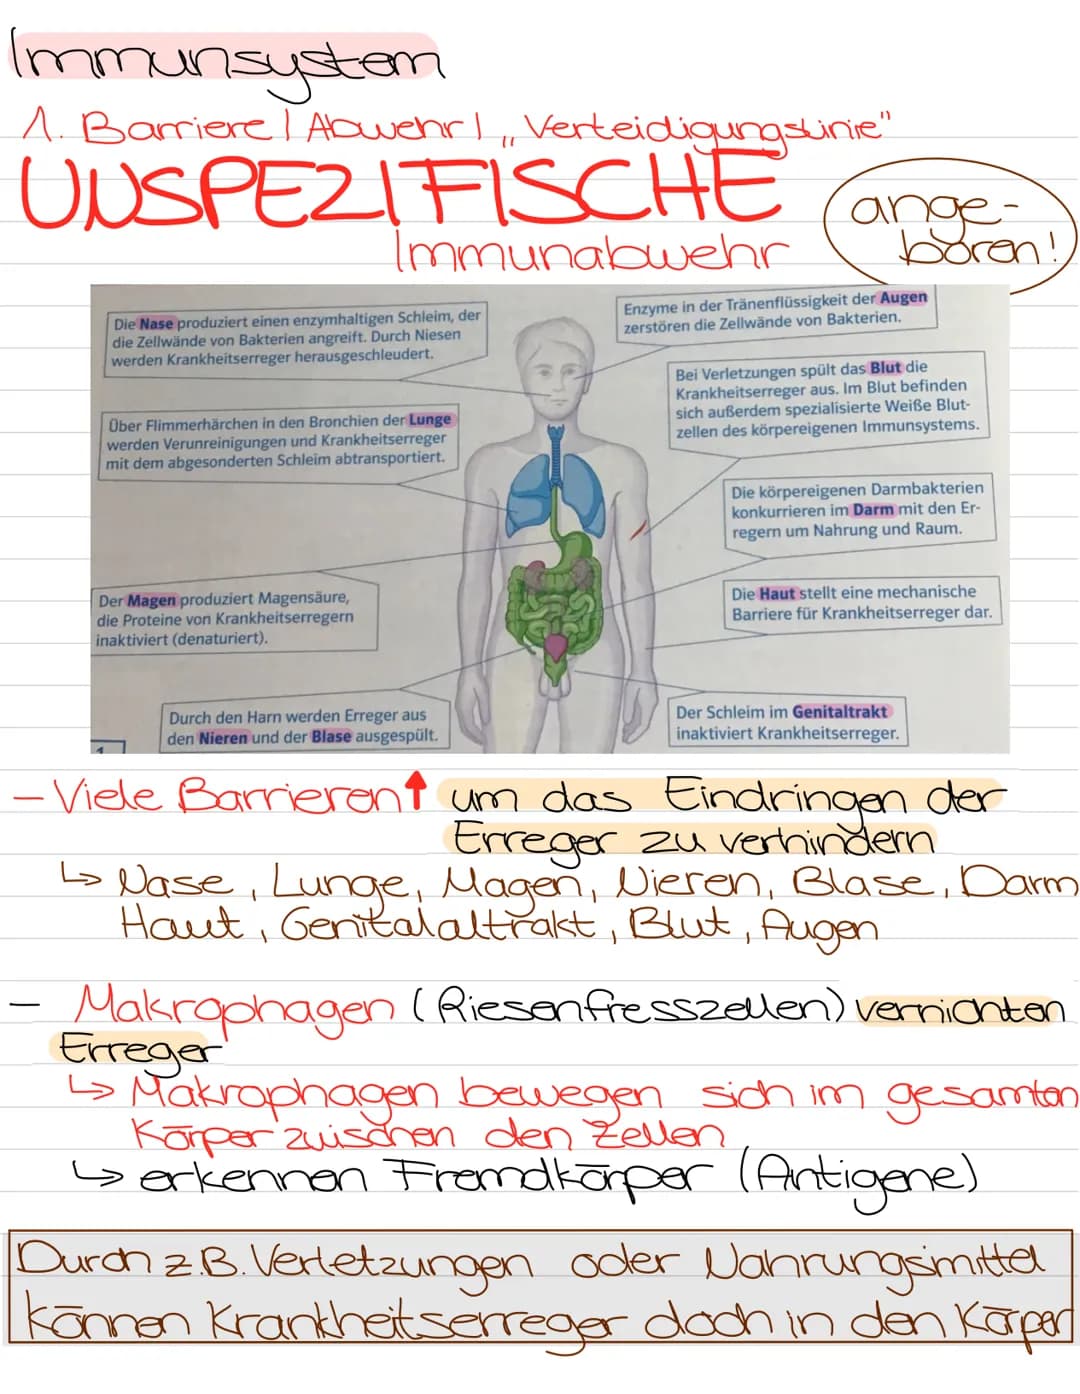 Immunsystem
1. Barriere / Abwehr / „Verteidigungslinie"
UNSPEZIFISCHE
Immunabwehr
ange-
boren!
Die Nase produziert einen enzymhaltigen Schleim, der
die Zellwände von Bakterien angreift. Durch Niesen
werden Krankheitserreger herausgeschleudert.
Enzyme in der Tränenflüssigkeit der Augen
zerstören die Zellwände von Bakterien.
Bei Verletzungen spült das Blut die
Krankheitserreger aus. Im Blut befinden
sich außerdem spezialisierte Weiße Blut-
zellen des körpereigenen Immunsystems.
Über Flimmerhärchen in den Bronchien der Lunge
werden Verunreinigungen und Krankheitserreger
mit dem abgesonderten Schleim abtransportiert.
Die körpereigenen Darmbakterien
konkurrieren im Darm mit den Er-
regern um Nahrung und Raum.
Der Magen produziert Magensäure,
die Proteine von Krankheitserregern
inaktiviert (denaturiert).
Die Haut stellt eine mechanische
Barriere für Krankheitserreger dar.
Durch den Harn werden Erreger aus
den Nieren und der Blase ausgespült.
Der Schleim im Genitaltrakt
inaktiviert Krankheitserreger.
1
- Viele Barrieren↑ um das Eindringen der
Erreger zu verhindern
↳ Nase, Lunge, Magen, Nieren, Blase, Darm
Haut, Genitalaltrakt, Blut, Augen
- Makrophagen (Riesenfresszellen) vernichten
Erreger
↳ Makrophagen bewegen sich im gesamten
Körper zwischen den Zellen
↳ erkennen Fremdkörper (Antigene)
Durch z.B. Verletzungen oder Nahrungsmittel
können Krankheitserreger doch in den Körper